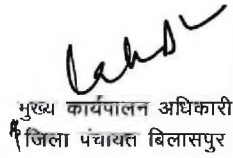 मुख्य कार्यपालन अधिकारी
जिला पंचायत बिलासपुर